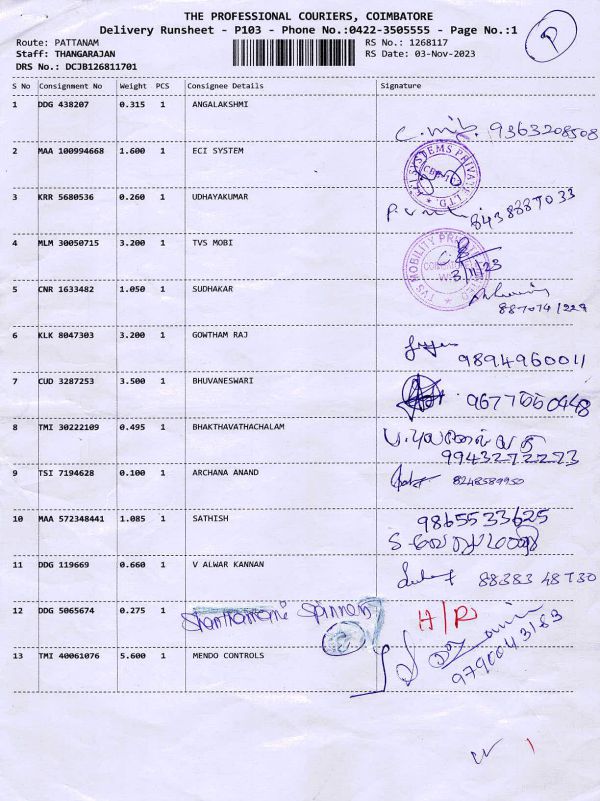 THE PROFESSIONAL COURIERS, COIMBATORE
Delivery Runsheet - P103 - Phone No.:0422-3505555 - Page No.:1
P
Route: PATTANAM RS No.: 1268117
Staff: THANGARAJAN RS Date: 03-Nov-2023
DRS No.: DCJB126811701
S No Consignment No Weight PCS Consignee Details Signature
1 DDG 438207 0.315 1 ANGALAKSHMI
9363208508
2 MAA 100994668 1.600 1 ECI SYSTEM
3 KRR 5680536 0.260 1 UDHAYAKUMAR
8438887033
4 MLM 30050715 3.200 1 TVS MOBI
TVS MOBILITY PRIVATE
3/11/23
5 CNR 1633482 1.050 1 SUDHAKAR
6 KLK 8047303 3.200 1 GOWTHAM RAJ
9894960011
7 CUD 3287253 3.500 1 BHUVANESWARI
8 TMI 30222109 0.495 1 BHAKTHAVATHACHALAM
9943272273
9 TSI 7194628 0.100 1 ARCHANA ANAND
8248589950
10 MAA 572348441 1.085 1 SATHISH
9865533625
11 DDG 119669 0.660 1 V ALWAR KANNAN
88383 48730
12 DDG 5065674 0.275 1
H/R
9790043163
13 TMI 40061076 5.600 1 MENDO CONTROLS